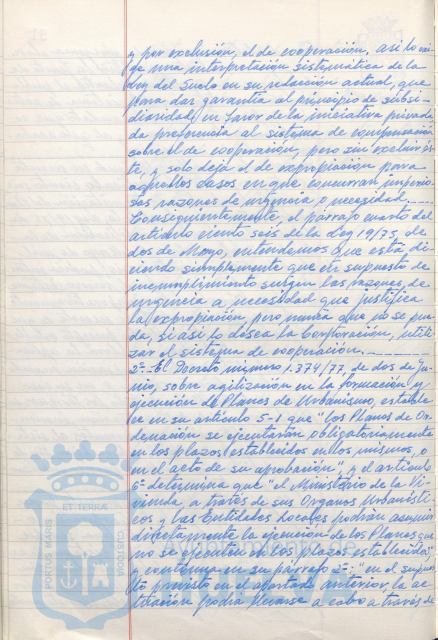 y por exclusión, el de cooperación, así lo exi-
ge una interpretación sistemática de la
Ley del Suelo en su redacción actual, que
para dar garantía al principio de subsi-
diariedad en favor de la iniciativa privada
da preferencia al sistema de compensación
sobre el de cooperación, pero sin excluir és-
te, y solo deja el de expropiación para
aquellos casos en que concurran imperio-
sas razones de urgencia o necesidad.
Consiguientemente, el párrafo cuarto del
artículo ciento seis de la Ley 19/75, de
dos de Mayo, entendemos que está di-
ciendo simplemente que el supuesto de
incumplimiento surgen las razones de
urgencia o necesidad que justifica
la expropiación pero nunca que no se pue-
da, si así lo desea la Corporación, utili-
zar el sistema de cooperación.
2º.- El Decreto número 1.374/77, de dos de ju-
nio, sobre agilización en la formación y
ejecución de Planes de Urbanismo, estable-
ce en su artículo 5-1 que "los Planes de Or-
denación se ejecutarán obligatoriamente
en los plazos establecidos en los mismos, o
en el acto de su aprobación", y el artículo
6º determina que "el Ministerio de la Vi-
vienda, a través de sus Organos Urbanísti-
cos y las Entidades Locales podrán asumir
directamente la ejecución de los Planes que
no se ejecuten en los plazos establecidos",
y continua en su párrafo 2º: "en el supues-
to previsto en el apartado anterior, la ac-
tuación podrá llevarse a cabo a través de
ET TERRA
PORTUS MARIS
CUSTODIA